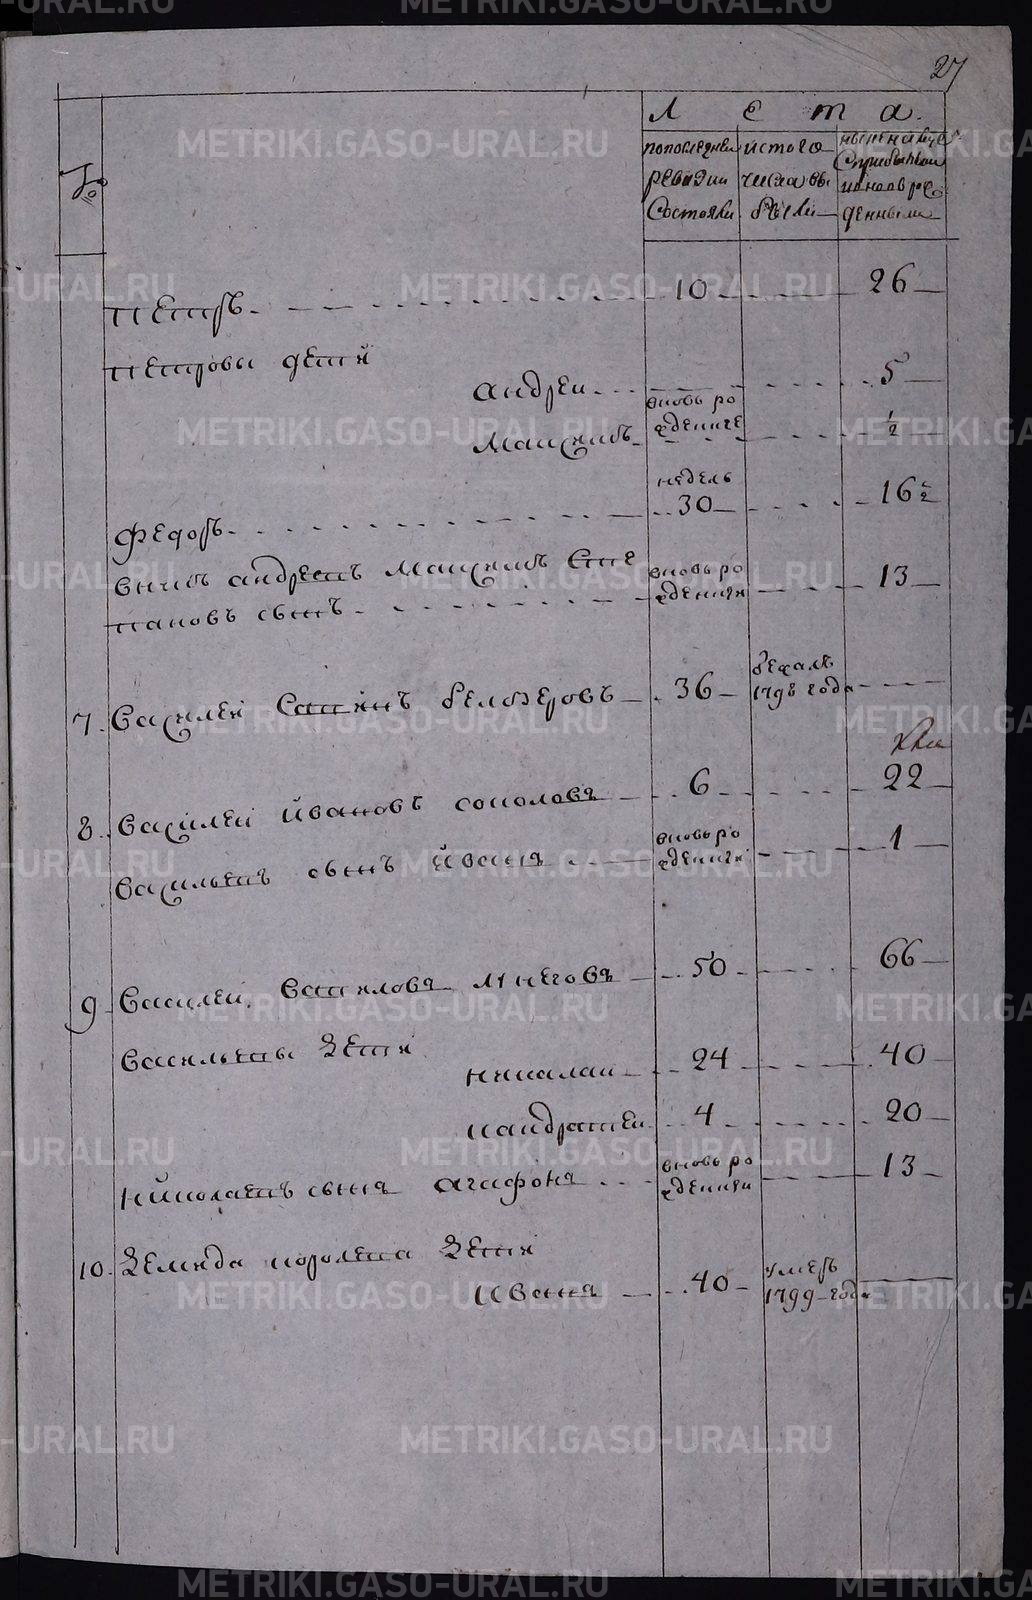 27
№
Лета
по последней ревизии состояли
ис того числа выбыли
ныне на лицо с прибылыми и новорожденными
Петръ 10 26
Петровы дети
Андреи 5
Максимъ вновь рожденные ½
Федоръ недель 30 16 ½
Внукъ Андреевъ Максимъ Степановъ сынъ вновь рожденны 13
7. Василеи бельзеровъ 36 бежалъ 1798 года
8. Василеи Ивановъ соколовъ 6 22
Васильевъ сынъ Иванъ вновь рожденны 1
9. Василеи 50 66
Васильевы дети
Николаи 24 40
Кандратеи 4 20
Николаевъ сынъ Агафонъ вновь рожденны 13
10. Демида королева дети
Иванъ 40 умеръ 1799 года
METRIKI.GASO-URAL.RU